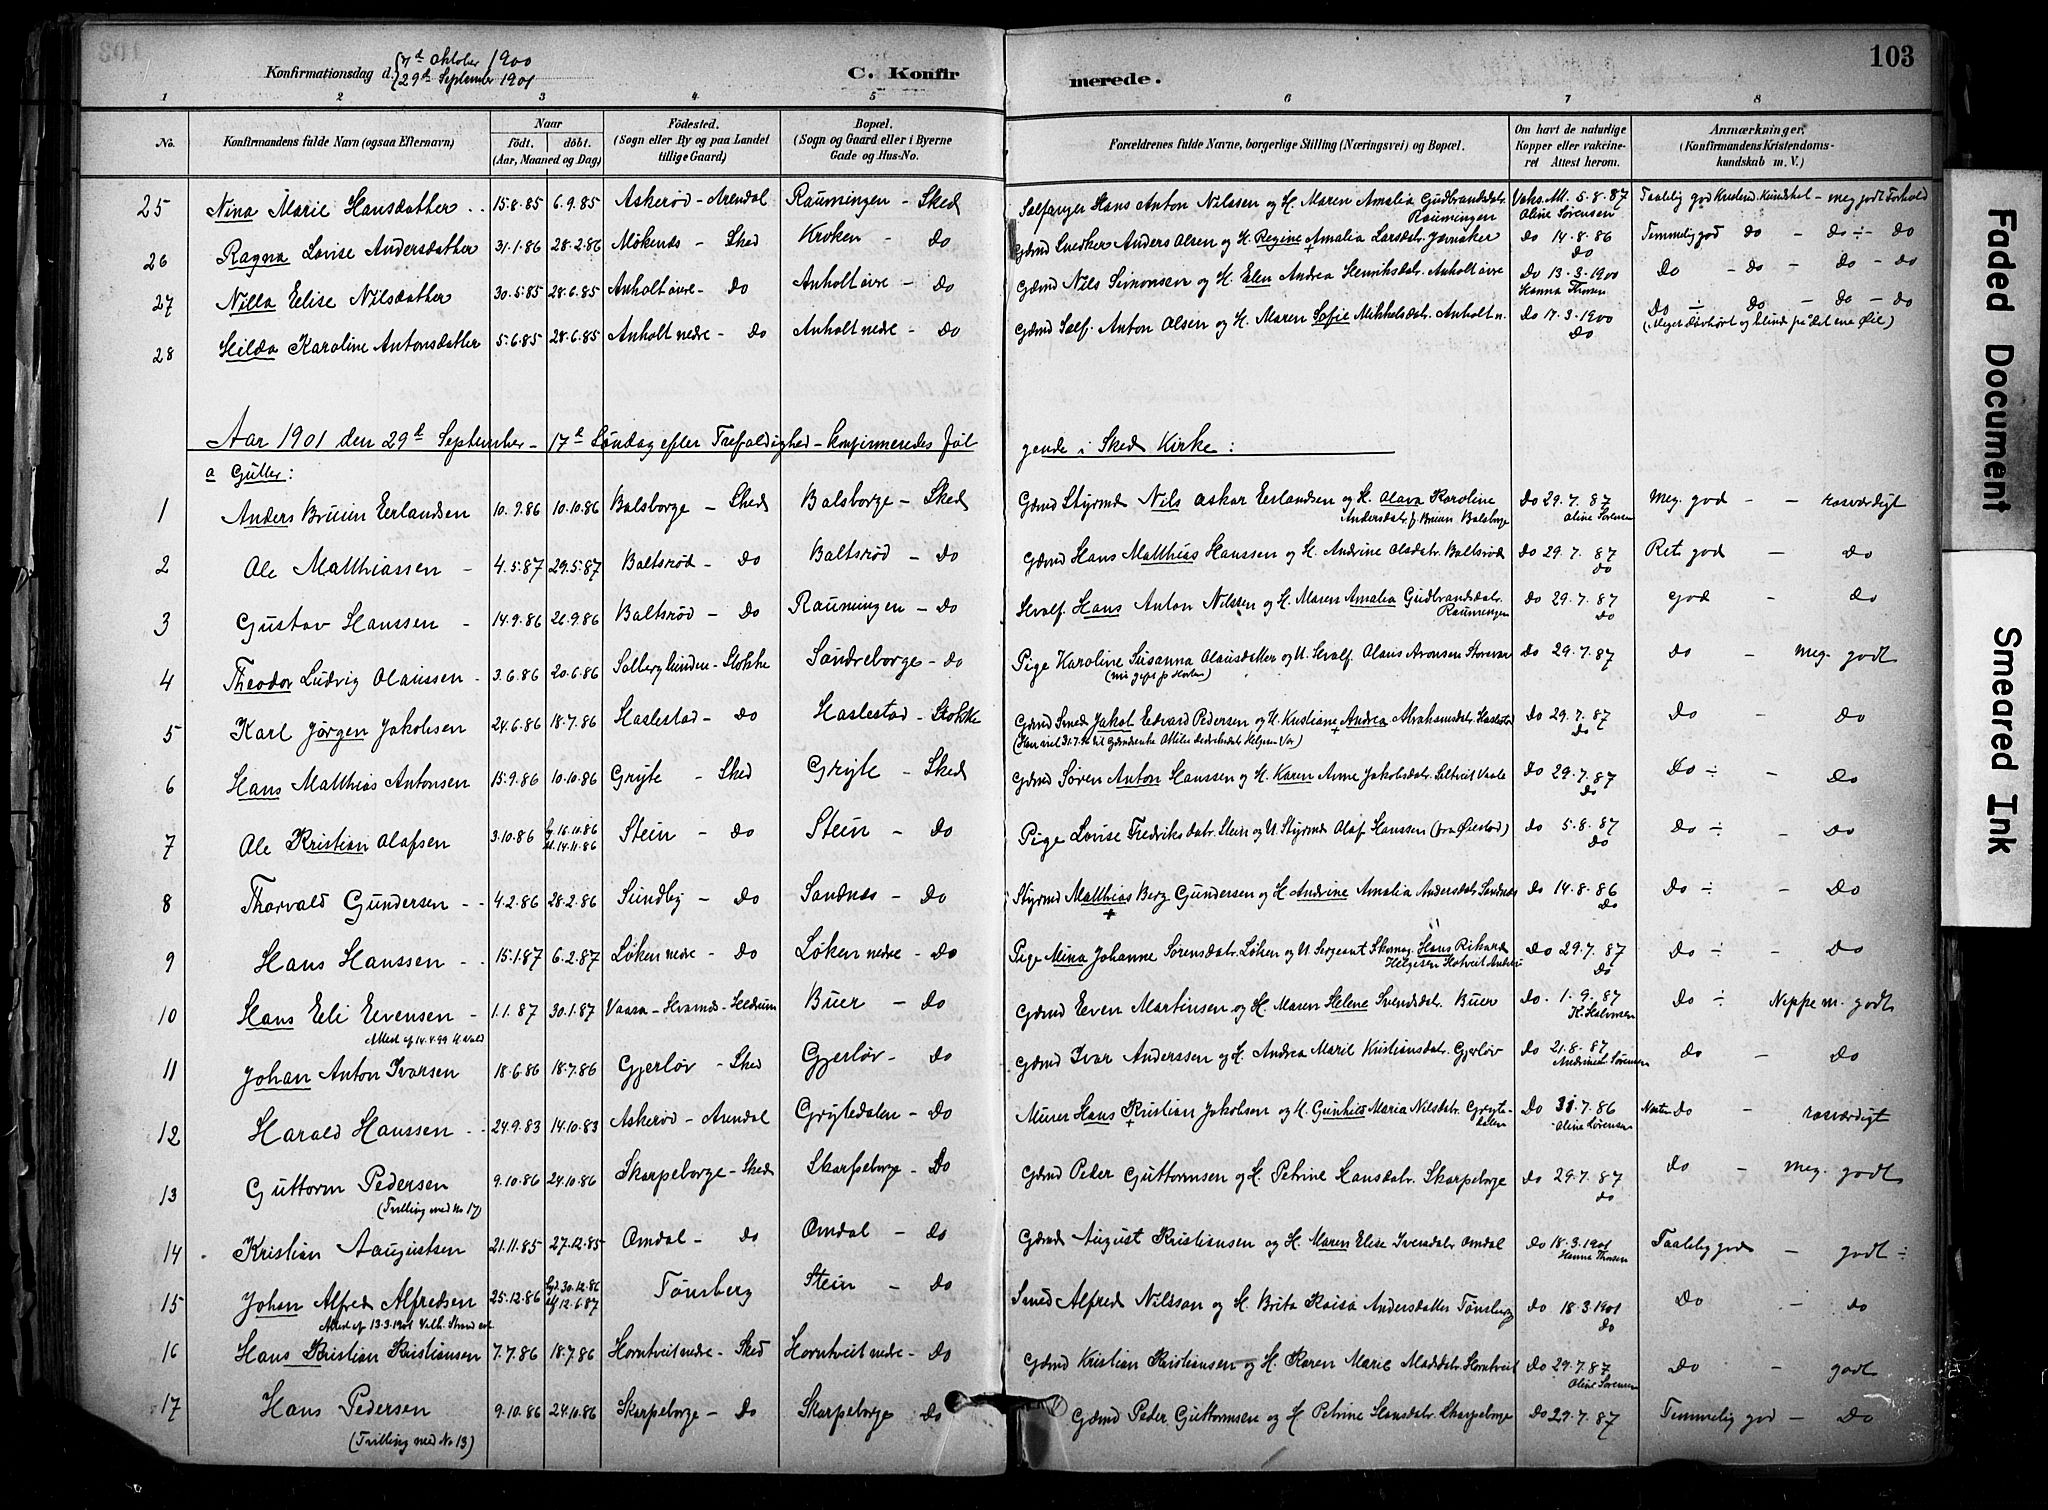 103
Konfirmationsdag d. 7d Oktober 1900
29d September 1901
C. Konfir merede.
1 2 3 4 5 6 7 8
No. Konfirmandens fulde Navn (ogsaa Efternavn) Naar født. døbt. (Aar, Maaned og Dag) Fødested. (Sogn eller By og paa Landet tillige Gaard) Bopæl. (Sogn og Gaard eller i Byerne Gade og Hus-No. Forældrenes fulde Navne, borgerlige Stilling (Næringsvei) og Bopæl. Om havt de naturlige Kopper eller vakcineret Attest herom. Anmærkninger, (Konfirmandens Kristendomskundskab m. V.)
25 Nina Marie Hansdatter 15.8.85 6.9.85 Askerød - Arendal Raumingen - Sked Sælfanger Hans Anton Nilssen og H. Maren Amalia Gudbrandsdatr. Raumingen Vaks. M. 5.8.87 Oline Sørensen Taalelig god Kristend. Kundskab - meg. godt Forhold
26 Ragna Lovise Andersdatter 31.1.86 28.2.86 Møkenæs - Sked Kroken - Do Gdmd Snedker Anders Olsen og H. Regine Amalia Larsdatr. Do 14.8.86 Do Temmelig god Do - Do ÷ Do
27 Nilla Elise Nilsdatter 30.5.85 28.6.85 Anholt øvre - Do Anholt øvre - Do Gdmd Nils Simonsen og H. Elen Andrea Henriksdatr. Anholt øvre Do 13.3.1900 Hanna Thorsen Do - Do - Do - Do
28 Hilda Karoline Antonsdatter 5.6.85 28.6.85 Anholt nedre - Do Anholt nedre - Do Gdmd Sælf. Anton Olsen og H. Maren Sofie Mikkelsdatr. Anholt n. Do 17.3.1900 Do Do ÷ Do - Do - Do
(Meget døvhørt og blind på det ene Øie)
Aar 1901 den 29d September - 17d Søndag efter Trefoldighed - konfirmeredes føl gende i Sked Kirke:
a Gutter:
1 Anders Bruun Erlandsen 10.9.86 10.10.86 Balsborge - Sked Balsborge - Sked Gdmd Styrmd Nils Oskar Erlandsen og H. Olava Karoline Andersdatr. f. Bruun Balsborge Do 29.7.87 Oline Sørensen Meg. god - - rosværdigt
2 Ole Matthiassen 4.5.87 29.5.87 Baltsrød - Do Baltsrød - Do Gdmd Hans Matthias Hanssen og H. Andrine Olsdatr. Baltsrød Do 29.7.87 Do Ret god - Do
3 Gustav Hanssen 14.9.86 26.9.86 Baltsrød - Do Raumingen - Do Hvalf. Hans Anton Nilssen og H. Maren Amalia Gudbrandsdatr. Raumingen Do 29.7.87 Do god - Do
4 Theodor Ludvig Olaussen 3.6.86 20.6.86 Solberglunden - Stokke Søndreborge - Do Pige Karoline Susanna Olausdatter og U. Hvalf. Olaus Aronsen Do 29.7.87 Do - Meg. godt
5 Karl Jørgen Jakobsen 24.6.86 18.7.86 Haslestad - Do Haslestad - Stokke Gdmd Smed Jakob Edvard Pedersen og H. Kristiane Andrea Abrahamsdatr. Haslestad Do 29.7.87 Do Do - Do
6 Hans Matthias Antonsen 15.9.86 10.10.86 Gryte - Sked Gryte - Sked Gdmd Søren Anton Hanssen og H. Karen Anne Jakobsdatr. Do 29.7.87 Do Do ÷ - Do
7 Ole Kristian Olafsen 3.10.86 16.10.86 14.11.86 Stein - Do Stein - Do Pige Lovise Fredriksdatr. Stein og U. Styrmd Olaf Hanssen Do 5.8.87 Do Do ÷ - Do
8 Thorvald Gundersen 4.2.86 28.2.86 Sundby - Do Sandnæs - Do Styrmd Matthias Berg Gundersen og H. Andrine Amalia Andersdatr. Sandnæs Do 14.8.86 Do Do ÷ - Do
9 Hans Hanssen 15.1.87 6.2.87 Løken nedre - Do Løken nedre - Do Pige Mina Johanne Sørensdatr. Løken og U. Sergeant Skomag. Hans Rikard Helgesen Do 29.7.87 Do Do ÷ - Do
10 Hans Eli Evensen 1.1.87 30.1.87 Buer - Do Gdmd Even Martinsen og H. Maren Helene Svendsdatr. Buer Do 1.9.87 K. Halvorsen Do ÷ Neppe m. godt
11 Johan Anton Ivarsen 18.6.86 18.7.86 Gjerløv - Sked Gjerløv - Do Gdmd Ivar Anderssen og H. Andrea Marie Kristiansdatr. Gjerløv Do 21.8.87 Do - Do
12 Harald Hanssen 24.9.83 14.10.83 Askerød - Arendal Grytedalen - Do Murer Hans Kristian Jakobsen og H. Gunhild Maria Nilsdatr. Grytedalen Do 31.7.86 Oline Sørensen Næsten Do - rosværdigt
13 Guttorm Pedersen 9.10.86 24.10.86 Skarpeborge - Sked Skarpeborge - Do Gdmd Peder Guttormsen og H. Petrine Hansdatr. Skarpeborge Do 29.7.87 Do Do - Meg. godt
(Tvilling med No 17)
14 Kristian Augustsen 21.11.85 27.12.85 Omdal - Do Omdal - Do Gdmd August Kristiansen og H. Maren Elise Iversdatr. Omdal Do 18.3.1901 Hanna Thorsen Taalelig god - godt ÷
15 Johan Alfred Alfredsen 25.12.86 30.12.86 12.6.87 Tønsberg Stein - Do Smed Alfred Nilsson og H. Brita Kaisa Andersdatter Tønsberg Do 18.3.1901 Do Do - Do
16 Hans Kristian Kristiansen 7.7.86 18.7.86 Horntveit nedre - Sked Horntveit nedre - Do Gdmd Kristian Kristiansen og H. Karen Marie Madsdatr. Horntveit Do 29.7.87 Oline Sørensen Do - godt
17 Hans Pedersen 9.10.86 24.10.86 Skarpeborge - Do Skarpeborge Do Gdmd Peder Guttormsen og H. Petrine Hansdatr. Skarpeborge Do 29.7.87 Temmelig god - Do
(Tvilling med No 13)
Faded Document
Smeared Ink